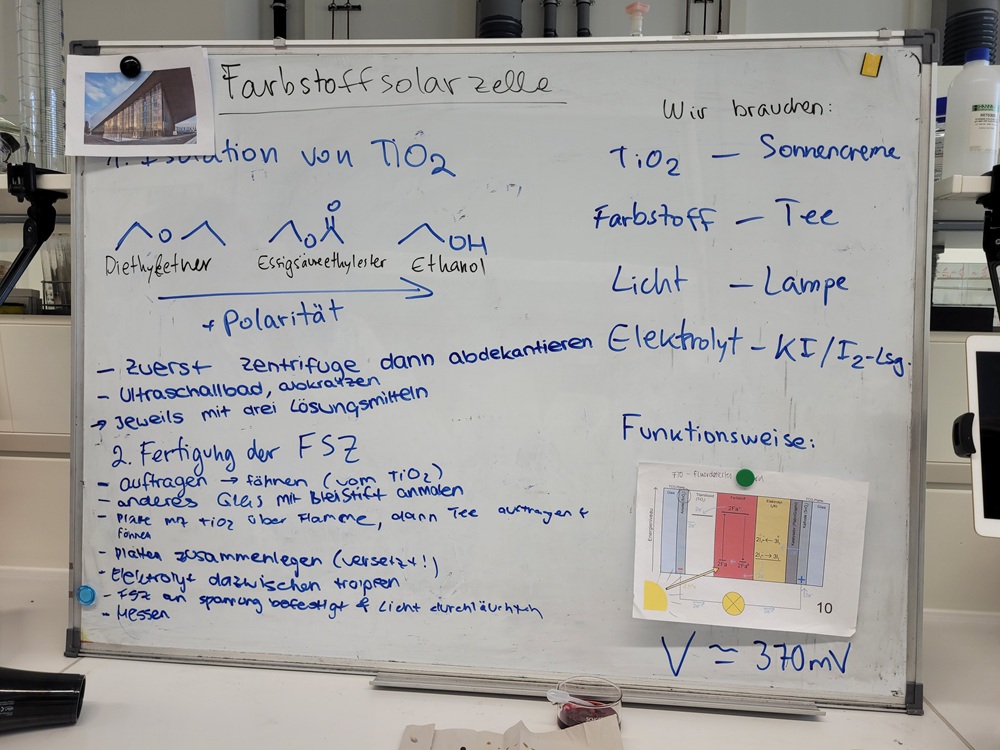 Farbstoffsolarzelle
1. Isolation von TiO2
O
O
O
OH
Diethylether
Essigsäureethylester
Ethanol
+ Polarität
- zuerst zentrifuge dann abdekantieren
- Ultraschallbad, abkratzen
→ jeweils mit drei Lösungsmitteln
2. Fertigung der FSZ
- auftragen → föhnen (vom TiO2)
- anderes Glas mit Bleistift anmalen
- Platte mit TiO2 über Flamme, dann Tee auftragen +
föhnen
- Platten zusammenlegen (versetzt!)
- Elektrolyt dazwischen tropfen
- FSZ an spannung befestigt & Licht
- Messen
Wir brauchen:
TiO2 — Sonnencreme
Farbstoff — Tee
Licht — Lampe
Elektrolyt - KI/I2-Lsg.
Funktionsweise:
FTO -
10
V ≃ 370mV